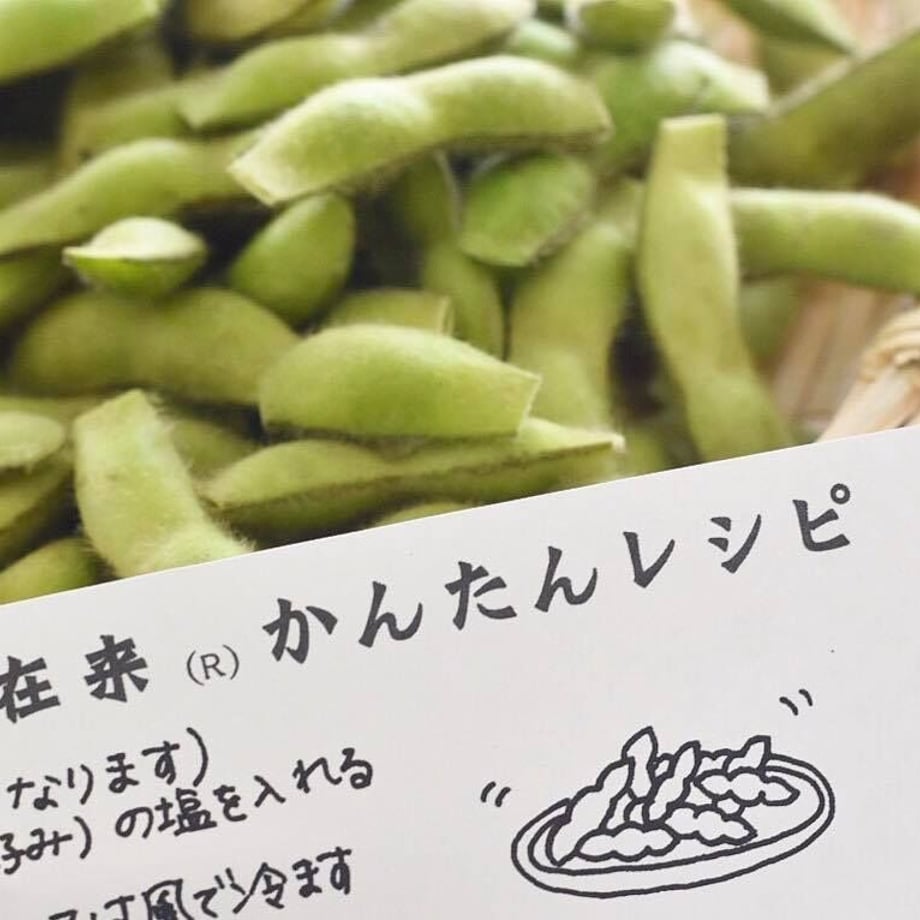 在来(R)かんたんレシピ
なります)
好み)の塩を入れる
は風で冷ます